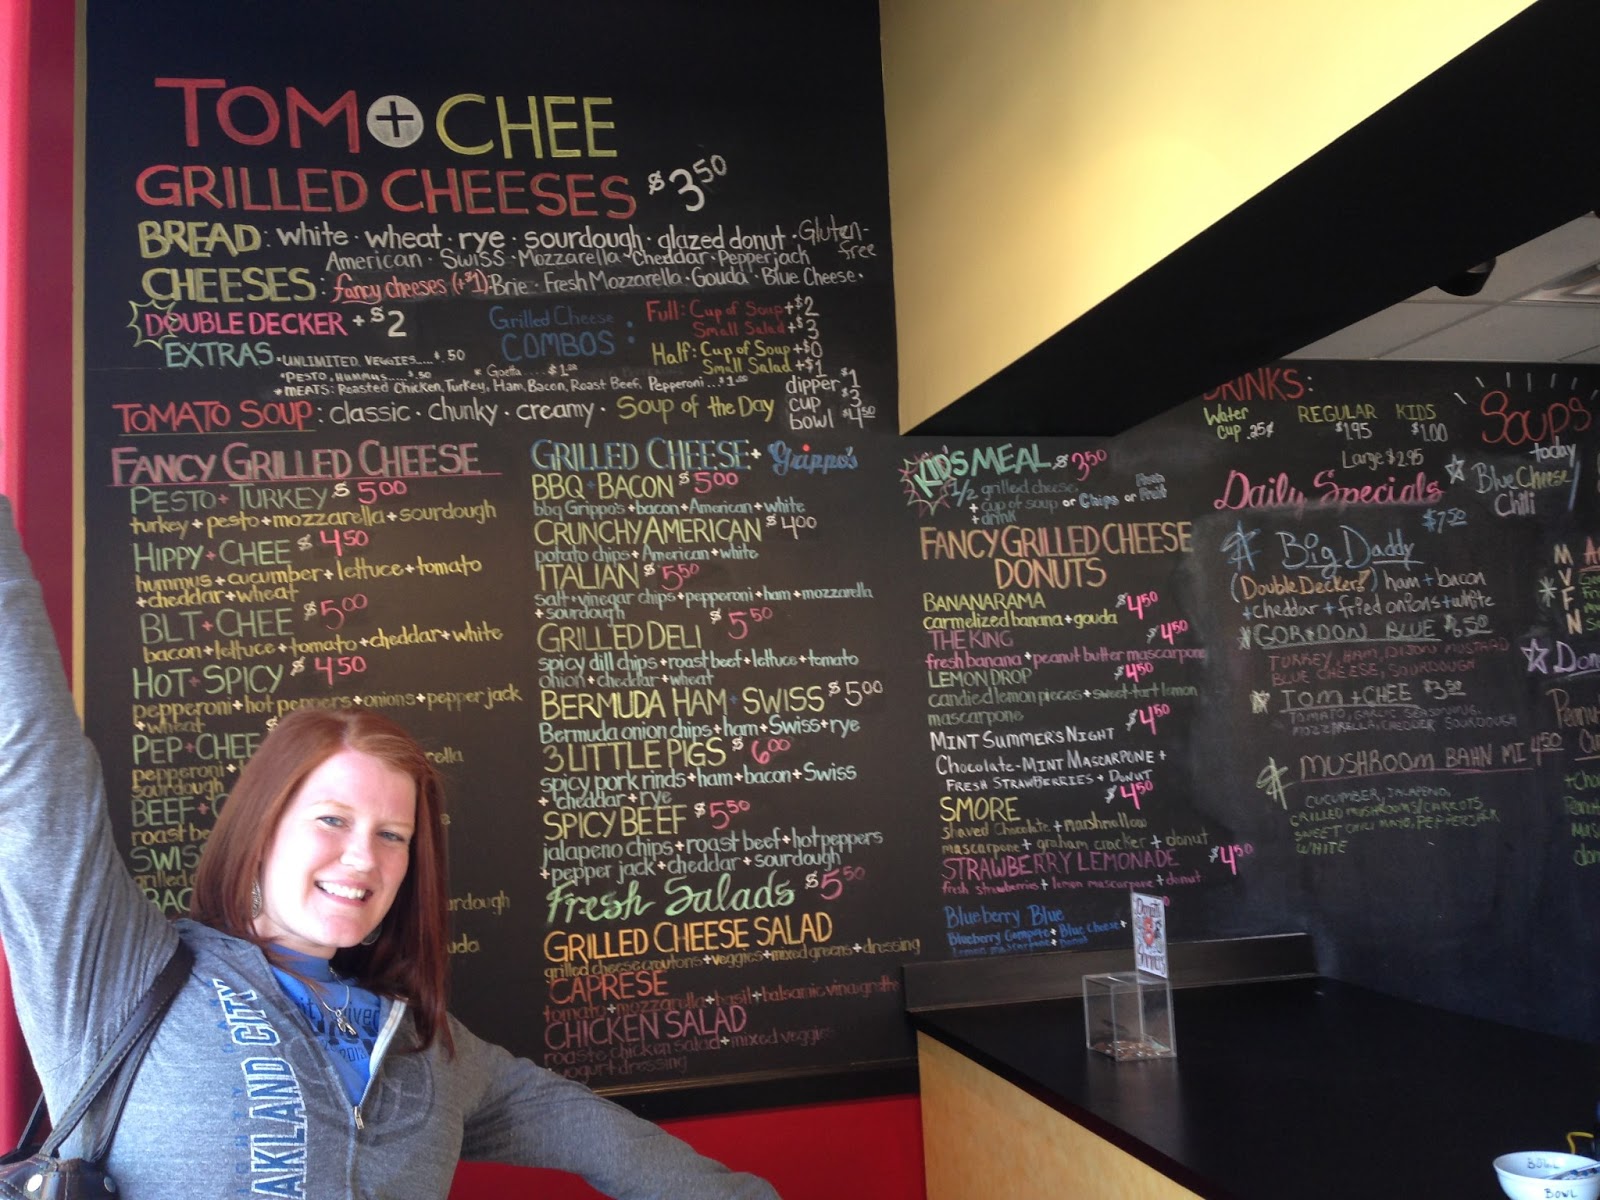 TOM + CHEE
GRILLED CHEESES $3.50
BREAD: white · wheat · rye · sourdough · glazed donut · Gluten-free
American · Swiss · Mozzarella · Cheddar · Pepperjack
CHEESES: fancy cheeses (+$1): Brie · Fresh Mozzarella · Gouda · Blue Cheese ·
DOUBLE DECKER + $2
EXTRAS · UNLIMITED VEGGIES.....$.50
*PESTO, HUMMUS......$.50 * Goetta ....$1.00
* MEATS: Roasted Chicken, Turkey, Ham, Bacon, Roast Beef, Pepperoni...$1.00
Grilled Cheese
COMBOS :
Full: Cup of Soup +$2
Small Salad +$3
Half: Cup of Soup +$0
Small Salad +$1
TOMATO SOUP: classic · chunky · creamy · Soup of the Day
dipper $1
cup $3
bowl $4.50
FANCY GRILLED CHEESE
PESTO + TURKEY $5.00
turkey + pesto + mozzarella + sourdough
HIPPY + CHEE $4.50
hummus + cucumber + lettuce + tomato
+ cheddar + wheat
BLT + CHEE $5.00
bacon + lettuce + tomato + cheddar + white
HOT + SPICY $4.50
pepperoni + hot peppers + onions + pepper jack
+ wheat
PEP + CHEE
pepperoni
sourdough
BEEF +
roast be
SWIS
grilled
BAC
GRILLED CHEESE + grippo's
BBQ + BACON $5.00
bbq Grippo's + bacon + American + white
CRUNCHY AMERICAN $4.00
potato chips + American + white
ITALIAN $5.50
salt + vinegar chips + pepperoni + ham + mozzarella
+ sourdough
GRILLED DELI $5.50
spicy dill chips + roast beef + lettuce + tomato
onion + cheddar + wheat
BERMUDA HAM + SWISS $5.00
Bermuda onion chips + ham + Swiss + rye
3 LITTLE PIGS $6.00
spicy pork rinds + ham + bacon + Swiss
+ cheddar + rye
SPICY BEEF $5.50
jalapeno chips + roast beef + hot peppers
+ pepper jack + cheddar + sourdough
Fresh Salads $5.50
GRILLED CHEESE SALAD
grilled cheese croutons + veggies + mixed greens + dressing
CAPRESE
tomato + mozzarella + basil + balsamic vinaigrette
CHICKEN SALAD
roaste chicken salad + mixed veggies
yogurt dressing
KID'S MEAL $3.50
1/2 grilled cheese
+ cup of soup or Chips or Fruit
+ drink
FANCY GRILLED CHEESE
DONUTS
BANANARAMA $4.50
carmelized banana + gouda
THE KING $4.50
fresh banana + peanut butter mascarpone
LEMON DROP $4.50
candied lemon pieces + sweet-tart lemon
mascarpone
MINT SUMMER'S NIGHT $4.50
Chocolate-MINT MASCARPONE +
FRESH STRAWBERRIES + DONUT
SMORE $4.50
shaved chocolate + marshmallow
mascarpone + graham cracker + donut
STRAWBERRY LEMONADE $4.50
fresh strawberries + lemon mascarpone + donut
Blueberry Blue
Blueberry Compote + Blue Cheese +
Lemon mascarpone + Donut
DRINKS:
Water cup .25¢
REGULAR $1.95
KIDS $1.00
Large $2.95
Soups
today
Blue Cheese
Chili
Daily Specials
Big Daddy $7.50
(Double Decker!) ham + bacon
+ cheddar + fried onions + white
GORDON BLUE $6.50
TURKEY, HAM, DIJON MUSTARD
BLUE CHEESE, SOURDOUGH
TOM + CHEE $3.50
TOMATO, GARLIC SEASONING,
MOZZARELLA, CHEDDER SOURDOUGH
MUSHROOM BAHN MI 4.50
CUCUMBER, JALAPENO,
GRILLED MUSHROOMS/CARROTS
SWEET CHILI MAYO, PEPPERJACK
WHITE
AKLAND CITY
BOWL